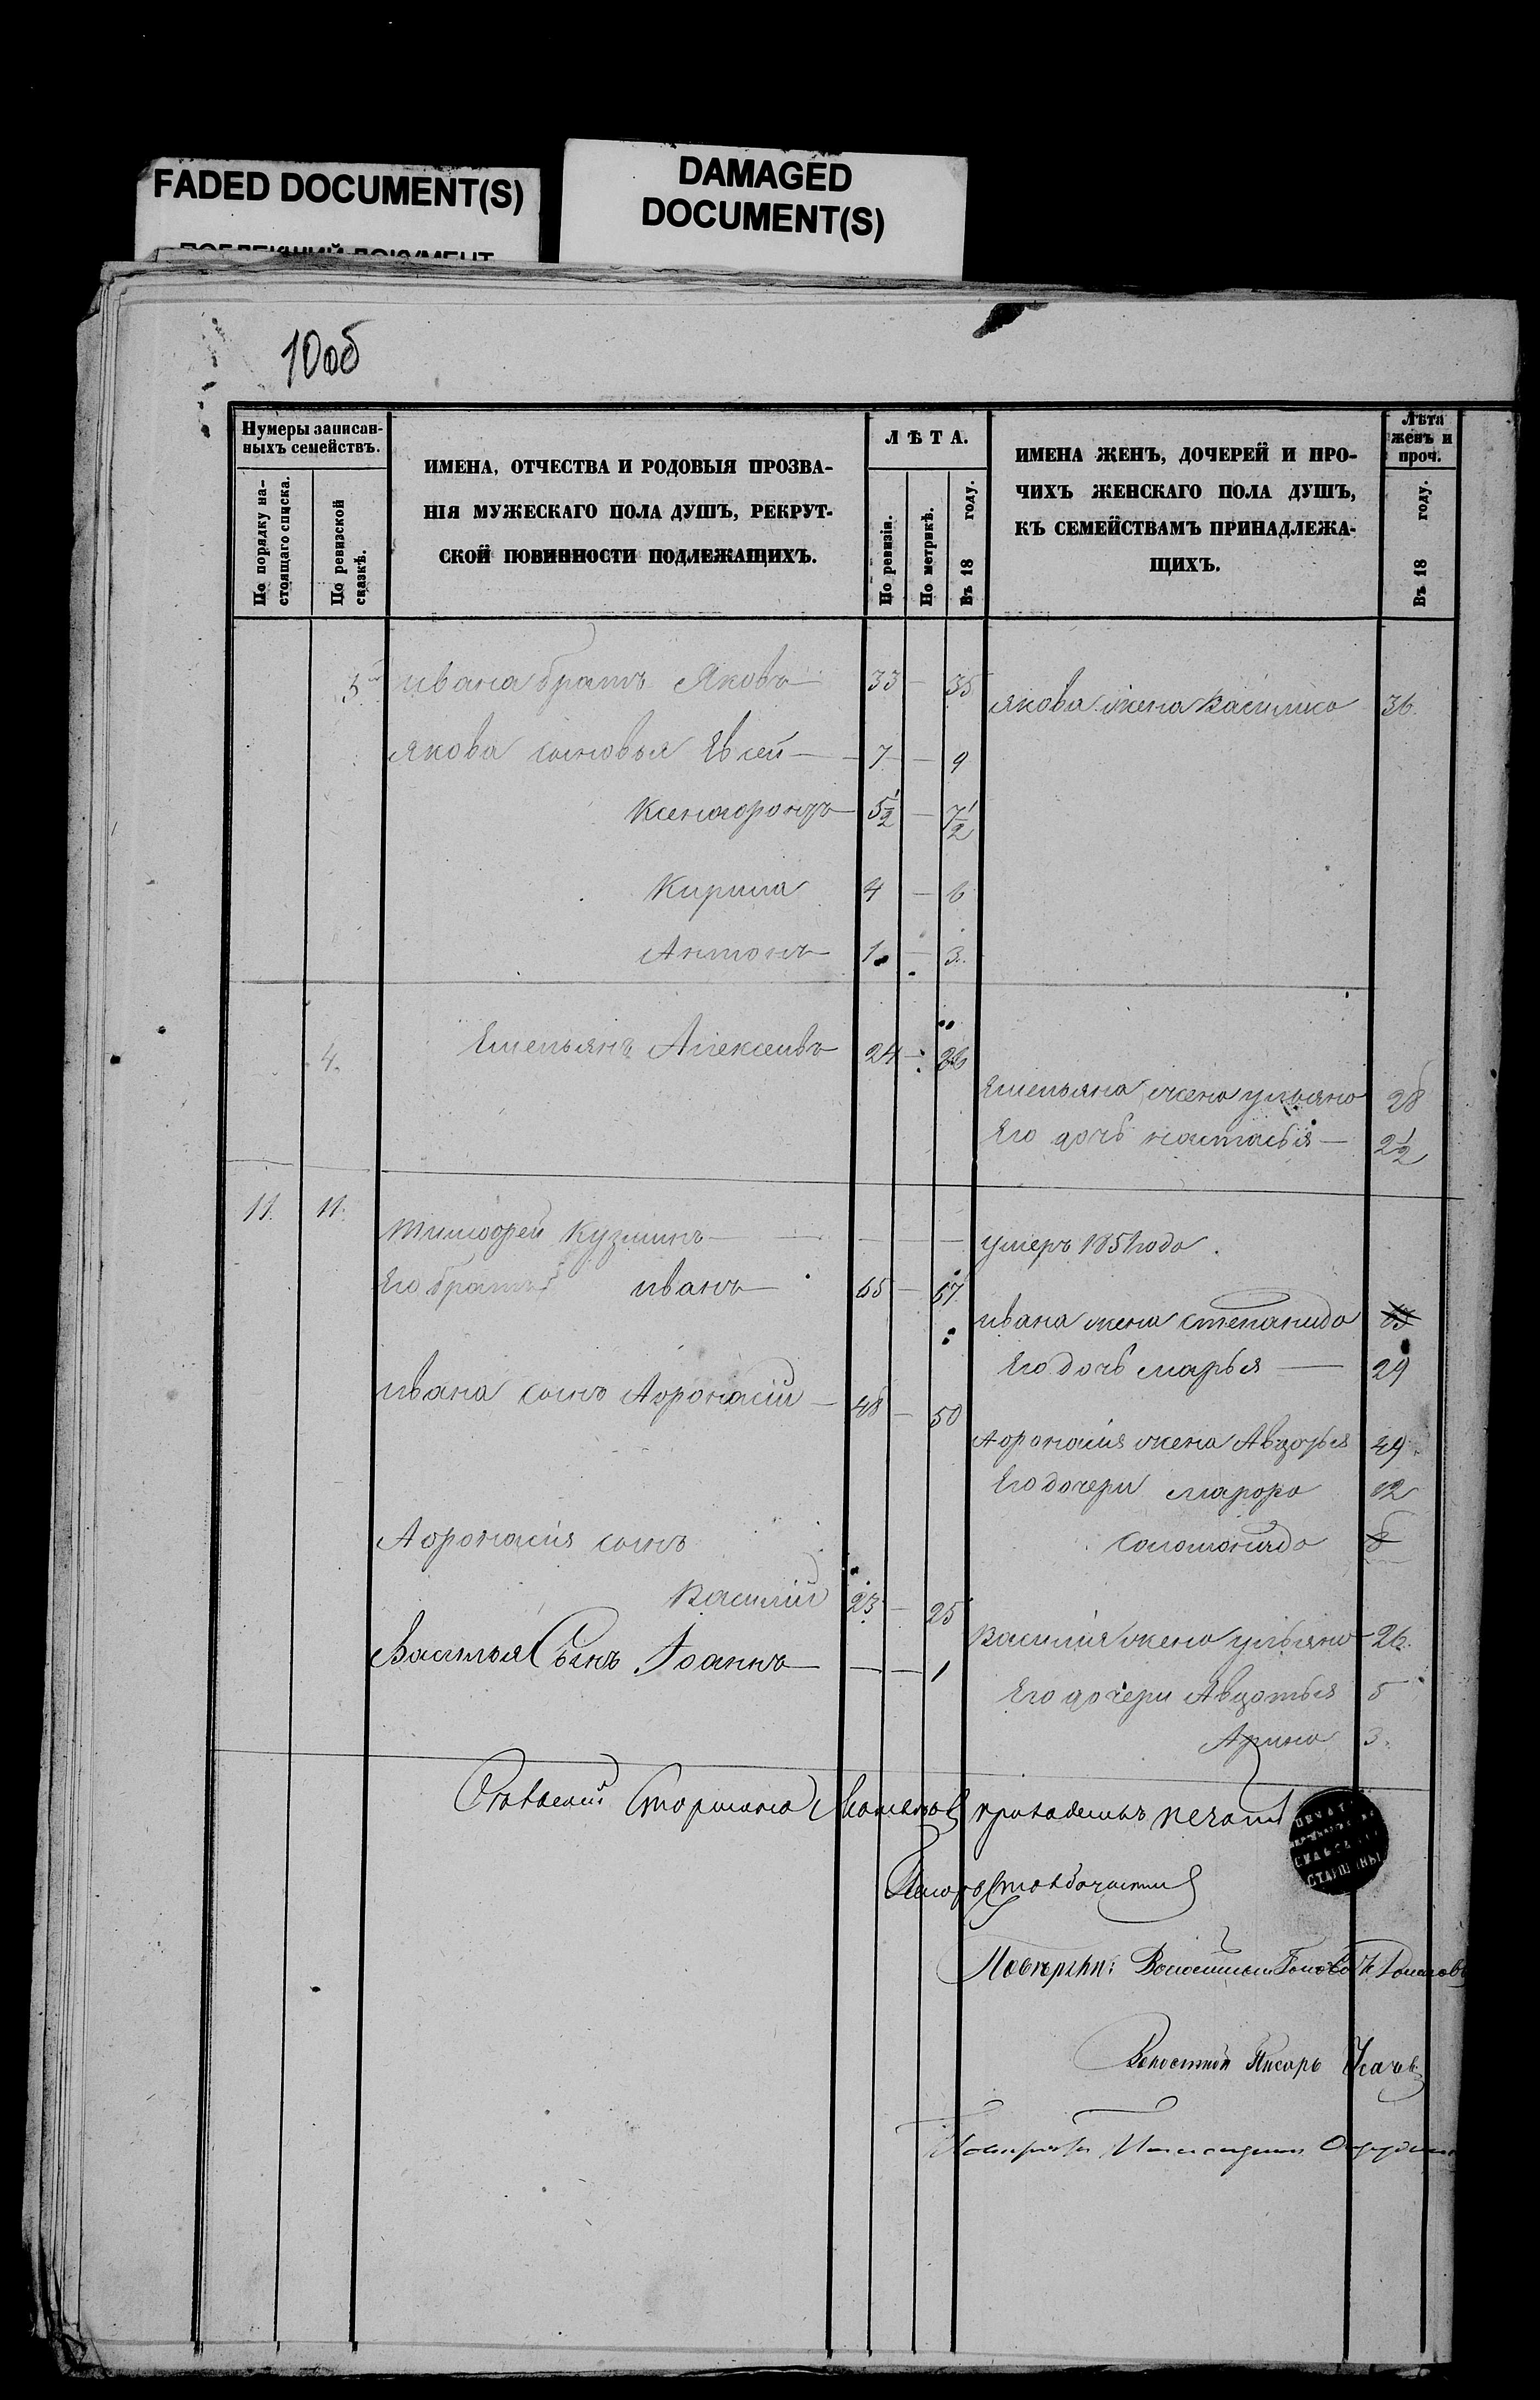 FADED DOCUMENT(S)
DAMAGED
DOCUMENT(S)
10об
Нумеры записан-
ныхъ семействъ.
По порядку на-
стоящаго списка.
По ревизской
сказкѣ.
ИМЕНА, ОТЧЕСТВА И РОДОВЫЯ ПРОЗВА-
НІЯ МУЖЕСКАГО ПОЛА ДУШЪ, РЕКРУТ-
СКОЙ ПОВИННОСТИ ПОДЛЕЖАЩИХЪ.
ЛѢТА.
По ревизіи.
По метрикѣ.
Въ 18 году.
ИМЕНА ЖЕНЪ, ДОЧЕРЕЙ И ПРО-
ЧИХЪ ЖЕНСКАГО ПОЛА ДУШЪ,
КЪ СЕМЕЙСТВАМЪ ПРИНАДЛЕЖА-
ЩИХЪ.
Лѣта
женъ и
проч.
Въ 18 году.
3 ивана братъ Яковъ 33 — 35
якова жена Василиса 36
якова сыновья Евсей — 7 — 9
Ксенофонтъ 5½ — 7½
Кирила 4 — 6
Антонъ 1 — 3
4. Емельянъ Алексеивъ 24 — 26
Емельяна жена ульяна 28
Его дочь настасья — 2½
11. 11. Тимофей Кузминъ — — — умеръ 1851 года.
Его братъ иванъ 65 — 67
ивана жена степанида
Его дочь марья — 29
ивана сынъ Афонасий — 48 — 50
Афонасия жена Авдотья 49
Его дочери марфа 12
Соломонида 8
Афонасия сынъ
Василий 23 — 25
Василия жена ульяна 26
Василья Сынъ Іоаннъ — — 1
Его дочери Авдотья 5
Арина 3.
Старшина печать
ПЕЧАТ
СТАРШИНЫ
Волостной Писарь